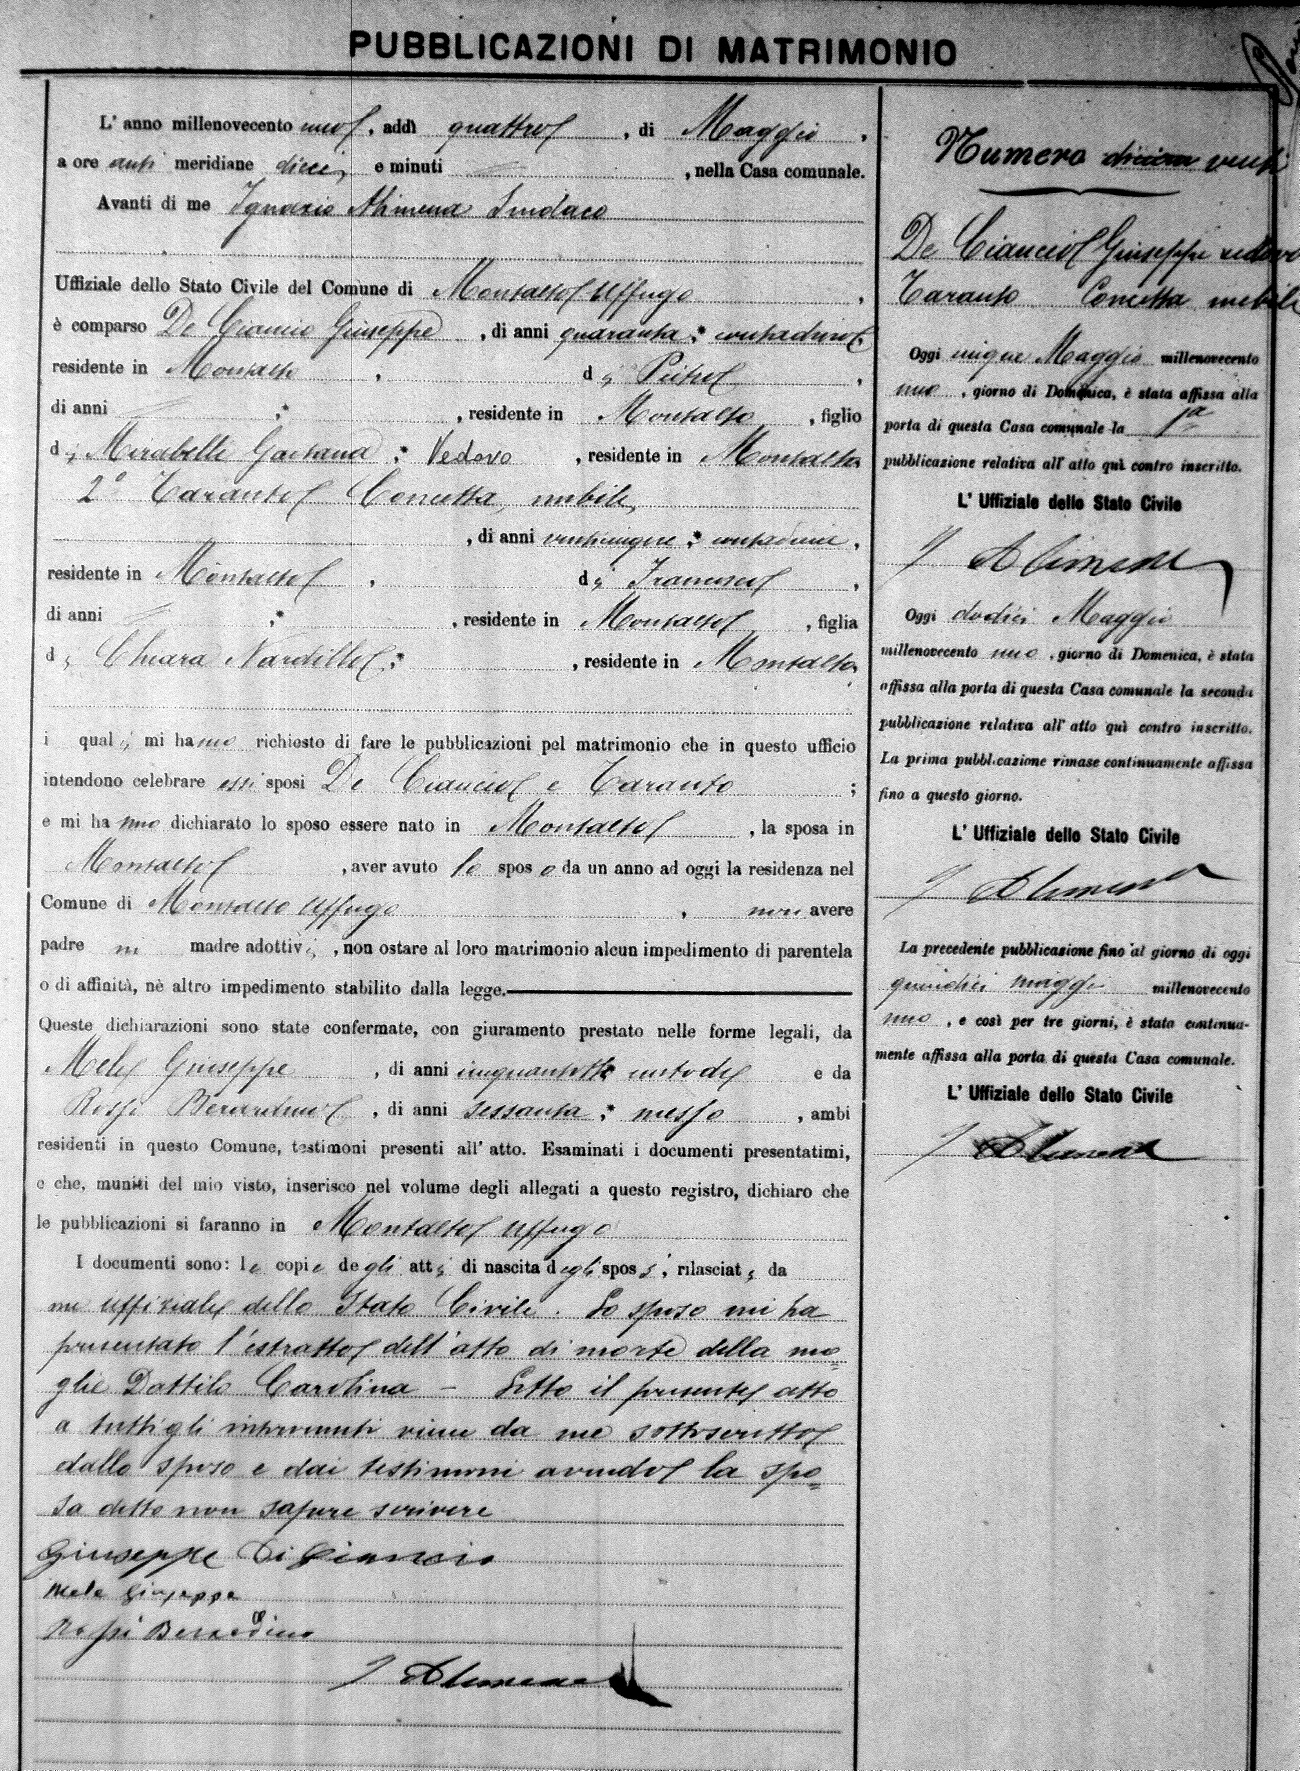 PUBBLICAZIONI DI MATRIMONIO
L' anno millenovecento uno, addì quattro, di Maggio,
a ore anti meridiane dieci, e minuti , nella Casa comunale.
Avanti di me Ignazio Alimena Sindaco
Uffiziale dello Stato Civile del Comune di Montalto Uffugo,
è comparso De Ciancio Giuseppe, di anni quaranta, contadino,
residente in Montalto, di Pietro,
di anni , residente in Montalto, figlio
di Mirabelle Gaetana, Vedovo, residente in Montalto
2° Taranto Concetta, nubile,
, di anni venticinque, contadina,
residente in Montalto, di Francesco,
di anni , residente in Montalto, figlia
di Chiara Nardillo, residente in Montalto,
i quali mi hanno richiesto di fare le pubblicazioni pel matrimonio che in questo ufficio
intendono celebrare essi sposi De Ciancio e Taranto ;
e mi hanno dichiarato lo sposo essere nato in Montalto, la sposa in
Montalto, aver avuto lo sposo da un anno ad oggi la residenza nel
Comune di Montalto Uffugo, non avere
padre nè madre adottivi, non ostare al loro matrimonio alcun impedimento di parentela
o di affinità, nè altro impedimento stabilito dalla legge.
Queste dichiarazioni sono state confermate, con giuramento prestato nelle forme legali, da
Mele Giuseppe, di anni custode e da
Rossi Berardino, di anni sessanta, messo, ambi
residenti in questo Comune, testimoni presenti all' atto. Esaminati i documenti presentatimi,
e che, muniti del mio visto, inserisco nel volume degli allegati a questo registro, dichiaro che
le pubblicazioni si faranno in Montalto Uffugo
I documenti sono: le copie degli atti di nascita degli sposi, rilasciate da
me uffiziale dello Stato Civile. Lo sposo mi ha
presentato l'estratto dell'atto di morte della mo=
glie Dattilo Carolina - Letto il presente atto
a tutti gli intervenuti viene da me sottoscritto
dallo sposo e dai testimoni avendo la spo=
sa detto non sapere scrivere
Giuseppe Di Ciancio
Mele Giuseppe
Rossi Berardino
I Alimena
Numero venti
De Ciancio Giuseppe vedovo
Taranto Concetta nubile
Oggi cinque Maggio millenovecento
uno, giorno di Domenica, è stata affissa alla
porta di questa Casa comunale la 1a
pubblicazione relativa all' atto quì contro inscritto.
L' Uffiziale dello Stato Civile
I Alimena
Oggi dodici Maggio
millenovecento uno, giorno di Domenica, è stata
affissa alla porta di questa Casa comunale la seconda
pubblicazione relativa all' atto quì contro inscritto.
La prima pubblicazione rimase continuamente affissa
fino a questo giorno.
L' Uffiziale dello Stato Civile
I Alimena
La precedente pubblicazione fino al giorno di oggi
quindici maggio millenovecento
uno, e così per tre giorni, è stata continua-
mente affissa alla porta di questa Casa comunale.
L' Uffiziale dello Stato Civile
I Alimena